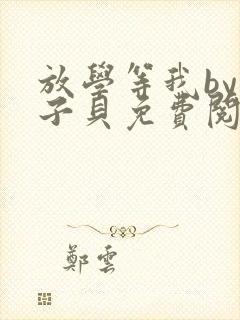 放學等我by
子貝免費閱
鄭雲